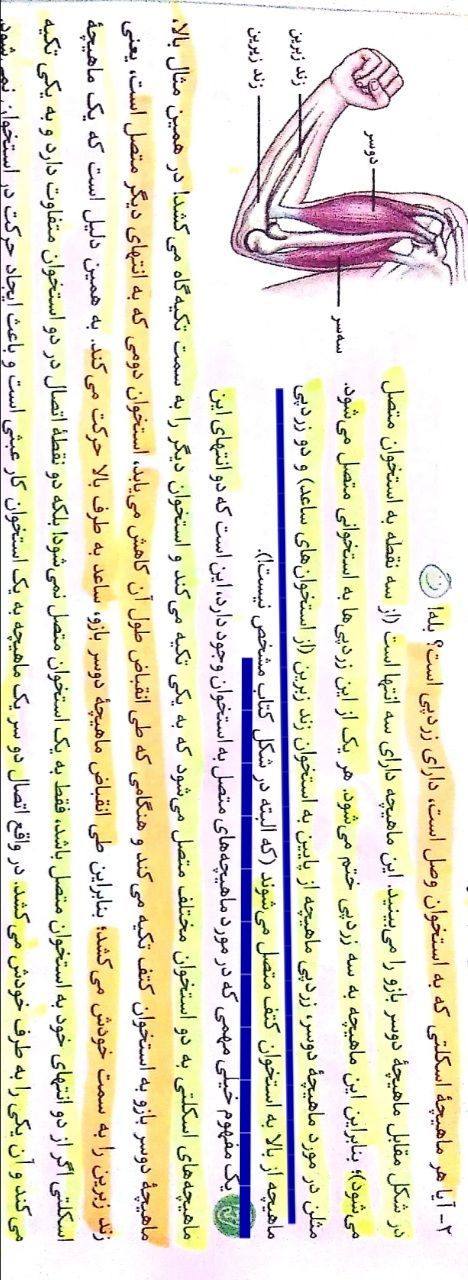 ۲- آیا هر ماهیچهٔ اسکلتی که به استخوان وصل است، دارای زردپی است؟ بله!
در شکل مقابل ماهیچهٔ دوسر بازو را می‌بینید. این ماهیچه دارای سه انتها است (از سه نقطه به استخوان متصل
می‌شود)؛ بنابراین این ماهیچه به سه زردپی ختم می‌شود. هر یک از این زردپی‌ها به استخوانی متصل می‌شود.
مثلن در مورد ماهیچهٔ دوسر، زردپی ماهیچه از پایین به استخوان زند زیرین (از استخوان‌های ساعد) و دو زردپی
ماهیچه از بالا به استخوان کتف متصل می‌شوند (که البته در شکل کتاب مشخص نیست!).
یک مفهوم خیلی مهمی که در مورد ماهیچه‌های متصل به استخوان وجود دارد، این است که دو انتهای این
ماهیچه‌های اسکلتی به دو استخوان مختلف متصل می‌شود که به یکی تکیه می‌کند و استخوان دیگر را به سمت تکیه‌گاه می‌کشد! در همین مثال بالا،
ماهیچهٔ دوسر بازو به استخوان کتف تکیه می‌کند و هنگامی که طی انقباض طول آن کاهش می‌یابد، استخوان دومی که به انتهای دیگر متصل است، یعنی
زند زیرین را به سمت خودش می‌کشد؛ بنابراین طی انقباض ماهیچهٔ دوسر بازو، ساعد به طرف بالا حرکت می‌کند. به همین دلیل است که یک ماهیچهٔ
اسکلتی اگر از دو انتهای خود به استخوان متصل باشد، فقط به یک استخوان متصل نمی‌شود! بلکه دو نقطهٔ اتصال در دو استخوان متفاوت دارد و به یکی تکیه
می‌کند و آن یکی را به طرف خودش می‌کشد. در واقع اتصال دو سر یک ماهیچه به یک استخوان کار عبثی است و باعث ایجاد حرکت در استخوان نمی‌شود.
زند زبرین
زند زیرین
دوسر
سه‌سر